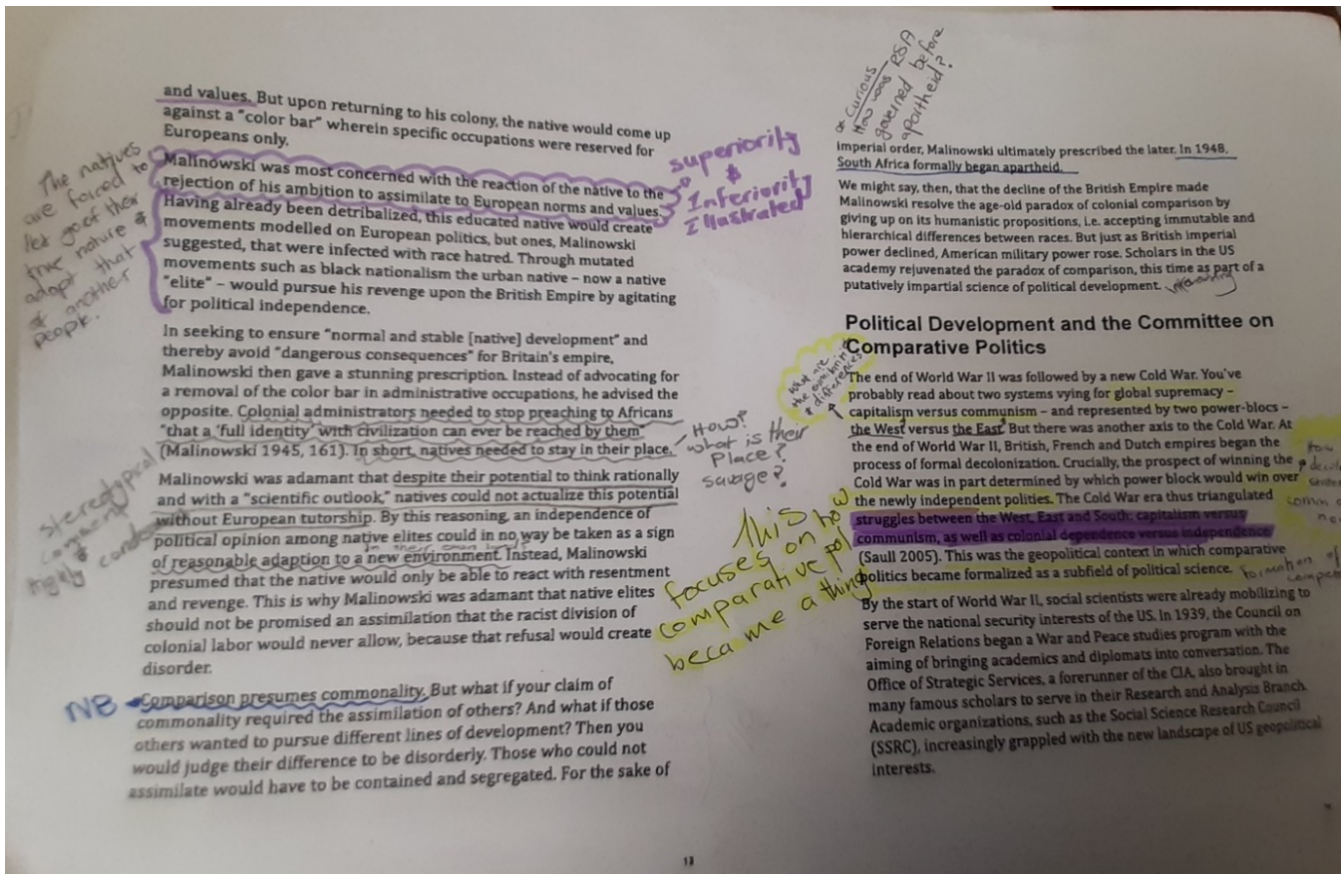 and values. But upon returning to his colony, the native would come up
against a "color bar" wherein specific occupations were reserved for
Europeans only.
Malinowski was most concerned with the reaction of the native to the
rejection of his ambition to assimilate to European norms and values.
Having already been detribalized, this educated native would create
movements modelled on European politics, but ones, Malinowski
suggested, that were infected with race hatred. Through mutated
movements such as black nationalism the urban native – now a native
"elite" – would pursue his revenge upon the British Empire by agitating
for political independence.
The natives
are forced to
let go of their
true nature &
adopt that
of another
people.
superiority
&
Inferiority
Illustrated
In seeking to ensure "normal and stable [native] development" and
thereby avoid "dangerous consequences" for Britain's empire,
Malinowski then gave a stunning prescription. Instead of advocating for
a removal of the color bar in administrative occupations, he advised the
opposite. Colonial administrators needed to stop preaching to Africans
"that a 'full identity' with civilization can ever be reached by them"
(Malinowski 1945, 161). In short, natives needed to stay in their place.
How?
what is their
Place?
savage?
Malinowski was adamant that despite their potential to think rationally
and with a "scientific outlook," natives could not actualize this potential
without European tutorship. By this reasoning, an independence of
political opinion among native elites could in no way be taken as a sign
of reasonable adaption to a new environment. Instead, Malinowski
presumed that the native would only be able to react with resentment
and revenge. This is why Malinowski was adamant that native elites
should not be promised an assimilation that the racist division of
colonial labor would never allow, because that refusal would create
disorder.
stereotypical
comment
&
highly
NB
Comparison presumes commonality. But what if your claim of
commonality required the assimilation of others? And what if those
others wanted to pursue different lines of development? Then you
would judge their difference to be disorderly. Those who could not
assimilate would have to be contained and segregated. For the sake of
Curious
How was RSA
governed before
apartheid?
imperial order, Malinowski ultimately prescribed the later. In 1948,
South Africa formally began apartheid.
We might say, then, that the decline of the British Empire made
Malinowski resolve the age-old paradox of colonial comparison by
giving up on its humanistic propositions, i.e. accepting immutable and
hierarchical differences between races. But just as British imperial
power declined, American military power rose. Scholars in the US
academy rejuvenated the paradox of comparison, this time as part of a
putatively impartial science of political development.
Political Development and the Committee on
Comparative Politics
what are
the
differences
The end of World War II was followed by a new Cold War. You've
probably read about two systems vying for global supremacy –
capitalism versus communism – and represented by two power-blocs –
the West versus the East. But there was another axis to the Cold War. At
the end of World War II, British, French and Dutch empires began the
process of formal decolonization. Crucially, the prospect of winning the
Cold War was in part determined by which power block would win over
the newly independent polities. The Cold War era thus triangulated
struggles between the West, East and South: capitalism versus
communism, as well as colonial dependence versus independence
(Saull 2005). This was the geopolitical context in which comparative
politics became formalized as a subfield of political science.
formation of
This
focuses on how
comparative pol
became a thing
By the start of World War II, social scientists were already mobilizing to
serve the national security interests of the US. In 1939, the Council on
Foreign Relations began a War and Peace studies program with the
aiming of bringing academics and diplomats into conversation. The
Office of Strategic Services, a forerunner of the CIA, also brought in
many famous scholars to serve in their Research and Analysis Branch.
Academic organizations, such as the Social Science Research Council
(SSRC), increasingly grappled with the new landscape of US geopolitical
interests.
13